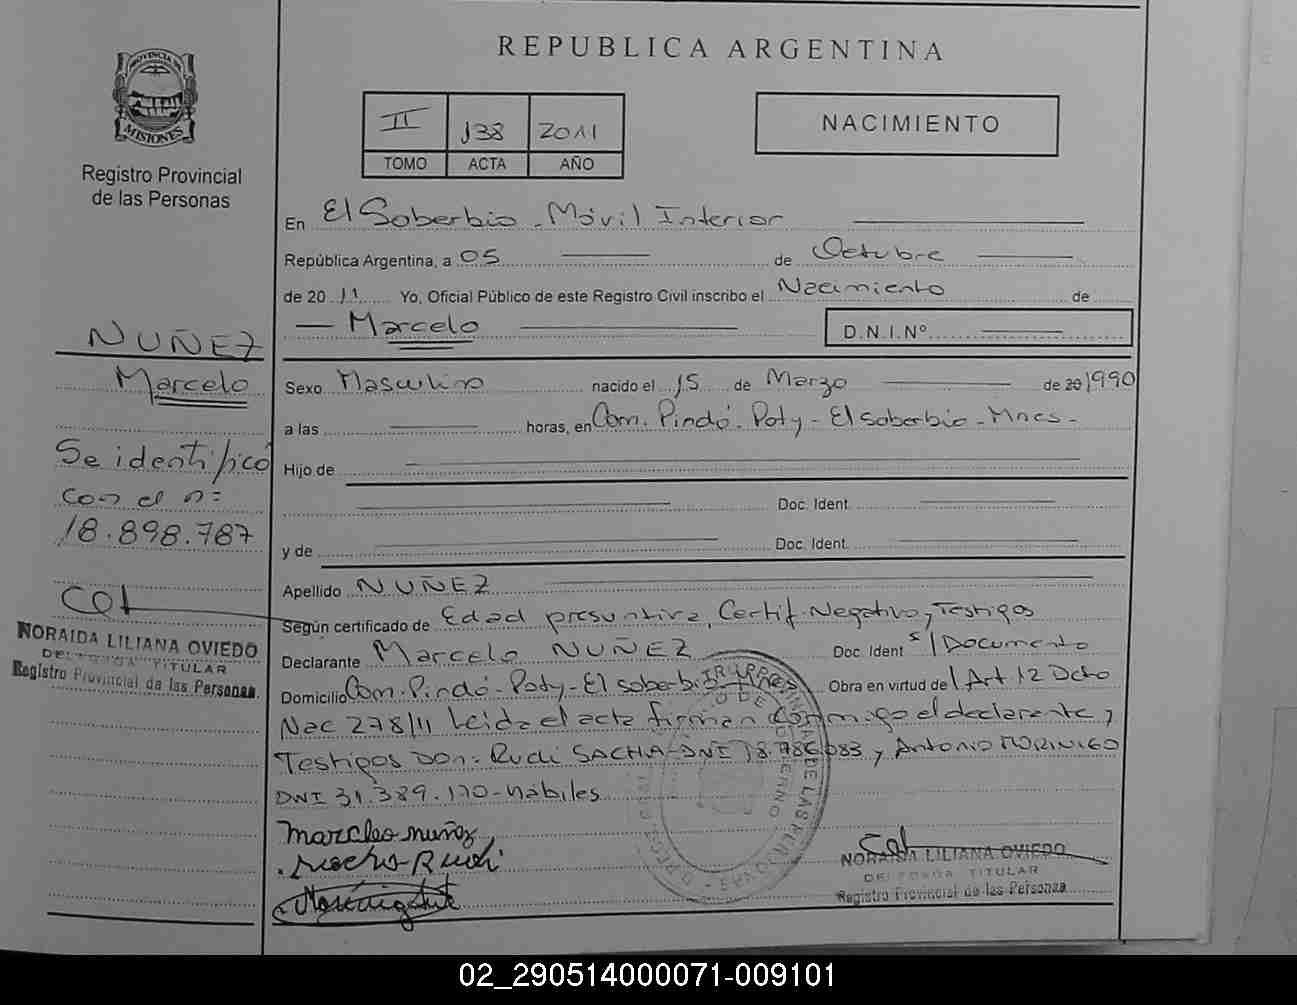 REPUBLICA ARGENTINA
PROVINCIA DE
MISIONES
Registro Provincial
de las Personas
II 138 2011
TOMO ACTA AÑO
NACIMIENTO
En El Soberbio - Móvil Interior
República Argentina, a 05 de Octubre
de 20 11 Yo, Oficial Público de este Registro Civil inscribo el Nacimiento de
Marcelo D.N.I.Nº
NUÑEZ
Marcelo
Se identificó
con el n:
18.898.787
NORAIDA LILIANA OVIEDO
DELEGADA TITULAR
Registro Provincial de las Personas
Sexo Masculino nacido el 15 de Marzo de 20 1990
a las horas, en Com. Pindó - Poty - El soberbio - Mnes -
Hijo de
Doc. Ident.
y de Doc. Ident.
Apellido NUÑEZ
Según certificado de Edad presuntiva, Certif. Negativo, Testigos
Declarante Marcelo NUÑEZ Doc. Ident s/Documento
Domicilio Com. Pindó - Poty - El soberbio - Mnes Obra en virtud de l Art 12 Dcto
Nac 278/11 Leida el acta firman conmigo el declarante y
Testigos Don: Rudi SACHA - DNI 18.786.083 y Antonio MORINIGO
DNI 31.389.170 - hábiles
marcleo nuñez
Rudi
NORAIDA LILIANA OVIEDO
DELEGADA TITULAR
Registro Provincial de las Personas
02_290514000071-009101